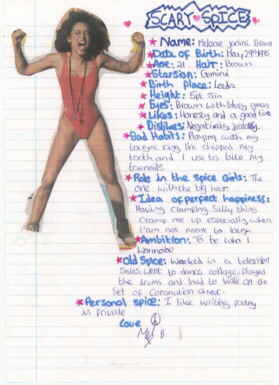 SCARY SPICE
Name: Melanie Janine Brown
Date of Birth: May 29th 1975
Age: 21 Hair: Brown
Starsign: Gemini
Birth Place: Leeds
Height: 5ft 5in
Eyes: Brown with bits of green
Likes: Honesty and a good
Dislikes: Negativity
Bad Habits: Playing with my
tongue ring. I've chipped my
tooth and I use to bite my
Role in the Spice Girls: The
one with the big hair.
Idea of perfect happiness:
Having silly things
me up especially when
I am not meant to laugh
Ambition: To be who I
wannabe
Old Spice: Worked in a
Sales, went to dance college, played
the drums and had to walk on an
set of Coronation Street.
Personal spice: I like writing, poetry
is private
Love
Mel B